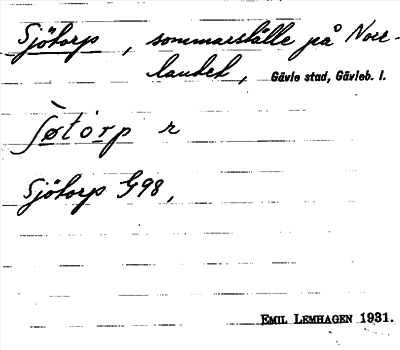 Sjötorp, sommarställe på Norr-
landet, Gävle stad, Gävleb. l.
ʃø̀tòrp r
Sjötorp G98,
EMIL LEMHAGEN 1931.